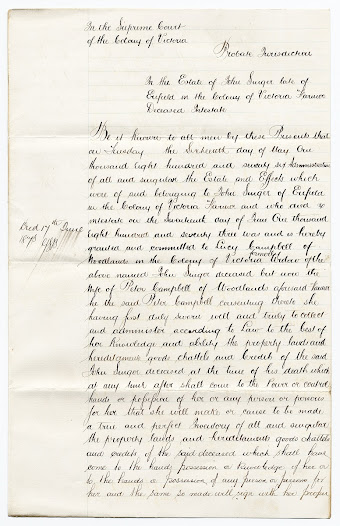 In the Supreme Court
of the Colony of Victoria
Probate Jurisdiction
In the Estate of John Singer late of
Enfield in the Colony of Victoria Farmer
Deceased Intestate
Be it known to all men by these Presents that
on Tuesday the Sixteenth day of May One
thousand Eight hundred and seventy six Administration
of all and singular the Estate and Effects which
were of and belonging to John Singer of Enfield
in the Colony of Victoria Farmer and who died
intestate on the Seventeenth day of June One thousand
Eight hundred and seventy three was and is hereby
granted and committed to Lucy Campbell of
Woodlands in the Colony of Victoria formerly Widow of the
above named John Singer deceased but now the
Wife of Peter Campbell of Woodlands aforesaid Farmer
he the said Peter Campbell consenting thereto she
having first duly sworn well and truly to collect
and administer according to Law to the best of
her Knowledge and ability the property lands and
hereditaments goods chattels and Credits of the said
John Singer deceased at the time of his death which
at any time after shall come to the Power or control
hands or possession of her or any person or persons
for her that she will make or cause to be made
a true and perfect Inventory of all and singular
the property lands and hereditaments goods chattels
and credits of the said deceased which shall have
come to the hands possession or knowledge of her or
to the hands or possession of any person or persons for
her and the same so made will sign with her proper
Died 17th June
1873